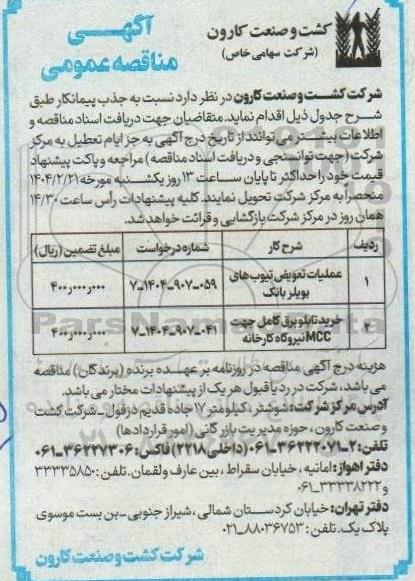 کشت و صنعت کارون
(شرکت سهامی خاص)
آگهـــی
مناقصه عمومی
شرکت کشت و صنعت کارون در نظر دارد نسبت به جذب پیمانکار طبق
شرح جدول ذیل اقدام نماید. متقاضیان جهت دریافت اسناد مناقصه و
اطلاعات بیشتر می توانند از تاریخ درج آگهی به جز ایام تعطیل به مرکز
شرکت (جهت توانسنجی و دریافت اسناد مناقصه) مراجعه و پاکت پیشنهاد
قیمت خود را حداکثر تا پایان ساعت ۱۳ روز یکشنبه مورخه ۱۴۰۴/۲/۲۱
منحصراً به مرکز شرکت تحویل نمایند. کلیه پیشنهادات رأس ساعت ۱۴/۳۰
همان روز در مرکز شرکت بازگشایی و قرائت خواهد شد.
ردیف شرح کار شماره درخواست مبلغ تضمین (ریال)
۱ عملیات تعویض تیوب های بویلر بانک ۷_۱۴۰۴_۹۰۷_۰۵۹ ۴۰۰٫۰۰۰٫۰۰۰
۲ خرید تابلو برق کامل جهت MCC نیروگاه کارخانه ۷_۱۴۰۴_۹۰۷_۰۴۱ ۴۰۰٫۰۰۰٫۰۰۰
هزینه درج آگهی مناقصه در روزنامه بر عهده برنده (برندگان) مناقصه
می باشد، شرکت در رد یا قبول هر یک از پیشنهادات مختار می باشد.
آدرس مرکز شرکت: شوشتر، کیلومتر ۱۷ جاده قدیم دزفول_شرکت کشت
و صنعت کارون، حوزه مدیریت بازرگانی (امور قراردادها)
تلفن: ۲_۳۶۲۲۲۰۷۱_۰۶۱ (داخلی ۲۲۱۸) فاکس: ۳۶۲۲۷۳۰۶_۰۶۱
دفتر اهواز: امانیه، خیابان سقراط، بین عارف و لقمان. تلفن: ۳۳۳۳۵۸۵۰
و ۳۳۳۳۸۲۲۲_۰۶۱
دفتر تهران: خیابان کردستان شمالی، شیراز جنوبی_بن بست موسوی
پلاک یک. تلفن: ۸۸۰۳۶۷۵۳_۰۲۱
شرکت کشت و صنعت کارون